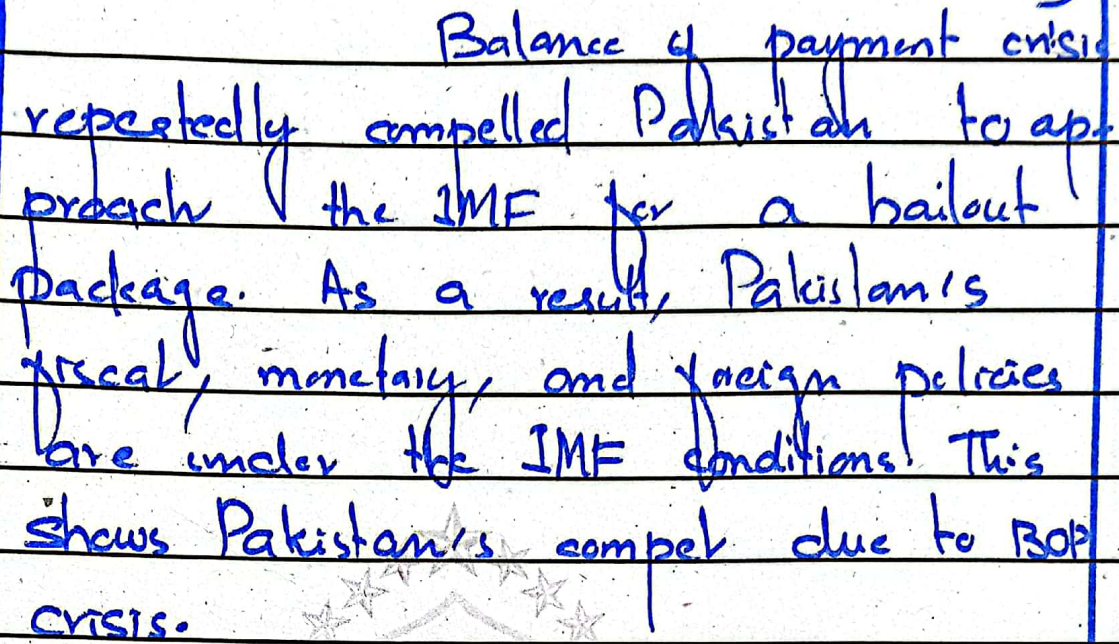 Balance of payment crisis
repeatedly compelled Pakistan to ap-
proach the IMF for a bailout
package. As a result, Pakistan's
fiscal, monetary, and foreign policies
are under the IMF conditions. This
shows Pakistan's compel due to BOP
crisis.